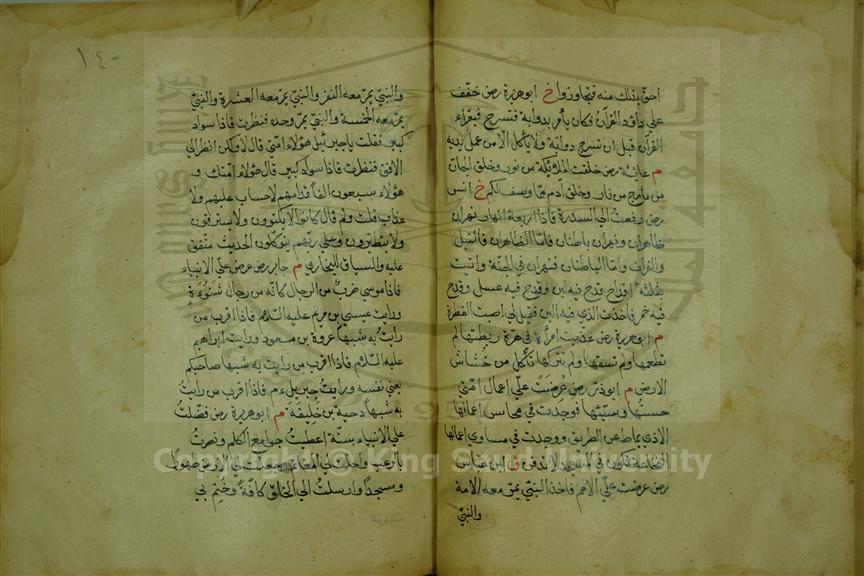 احق بذلك منه فتجاوزوا خ ابوهريرة رض خفف
على داود القرآن فكان يأمر بدوابه فتسرج فيقراء
القرآن قبل ان تسرج دوابه ولا يأكل الا من عمل يديه
م عائشة رض خلقت الملائكة من نور وخلق الجان
من مارج من نار وخلق ادم مما وصف لكم خ انس
رض رفعت الى السدرة فاذا اربعة انهار نهران
ظاهران ونهران باطنان فاما الظاهران فالنيل
والفرات واما الباطنان فنهران في الجنة واتيت
بثلثة اقداح قدح فيه لبن وقدح فيه عسل وقدح
فيه خمر فاخذت الذي فيه اللبن فقيل لي اصبت الفطرة
م ابوهريرة رض عذبت امرأة في هرة ربطتها لم
تطعمها ولم تسقها ولم تتركها تأكل من خشاش
الارض م ابوذر رض عرضت علي اعمال امتي
حسنها وسيئها فوجدت في محاسن اعمالها
الاذى يماط عن الطريق ووجدت في مساوي اعمالها
النخاعة تكون في المسجد لا تدفن ق ابن عباس
رض عرضت علي الامم فاخذ النبي يمر معه الامة
والنبي
١٤٠
والنبي يمر معه النفر والنبي يمر معه العشرة والنبي
يمر معه الخمسة والنبي يمر وحده فنظرت فاذا سواد
كبير فقلت يا جبرئيل هؤلاء امتي قال لا ولكن انظر الى
الافق فنظرت فاذا سواد كبير قال هؤلاء امتك و
هؤلاء سبعون الفا قدامهم لا حساب عليهم ولا
عذاب قلت ولم قال كانوا لا يكتوون ولا يسترقون
ولا يتطيرون وعلى ربهم يتوكلون الحديث متفق
عليه والسياق للبخاري م جابر رض عرض علي الانبياء
فاذا موسى ضرب من الرجال كانه من رجال شنوءة
ورايت عيسى بن مريم عليه السلام فاذا اقرب من
رايت به شبها عروة بن مسعود ورايت ابراهيم
عليه السلام فاذا اقرب من رايت به شبها صاحبكم
يعني نفسه ورايت جبريل ءم فاذا اقرب من رايت
به شبها دحية بن خليفة م ابوهريرة رض فضلت
على الانبياء بستة اعطيت جوامع الكلم ونصرت
بالرعب واحلت لي المغانم وجعلت لي الارض طهورا
ومسجدا وارسلت الى الخلق كافة وختم بي
Copyright © King Saud University